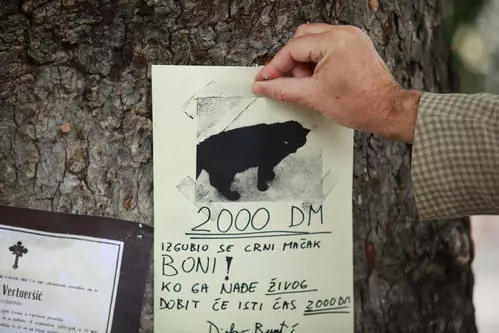 2000 DM
IZGUBIO SE CRNI MAČAK
BONI!
KO GA NAĐE ŽIVOG
DOBIT ĆE ISTI ČAS 2000 DM
Vertnersić